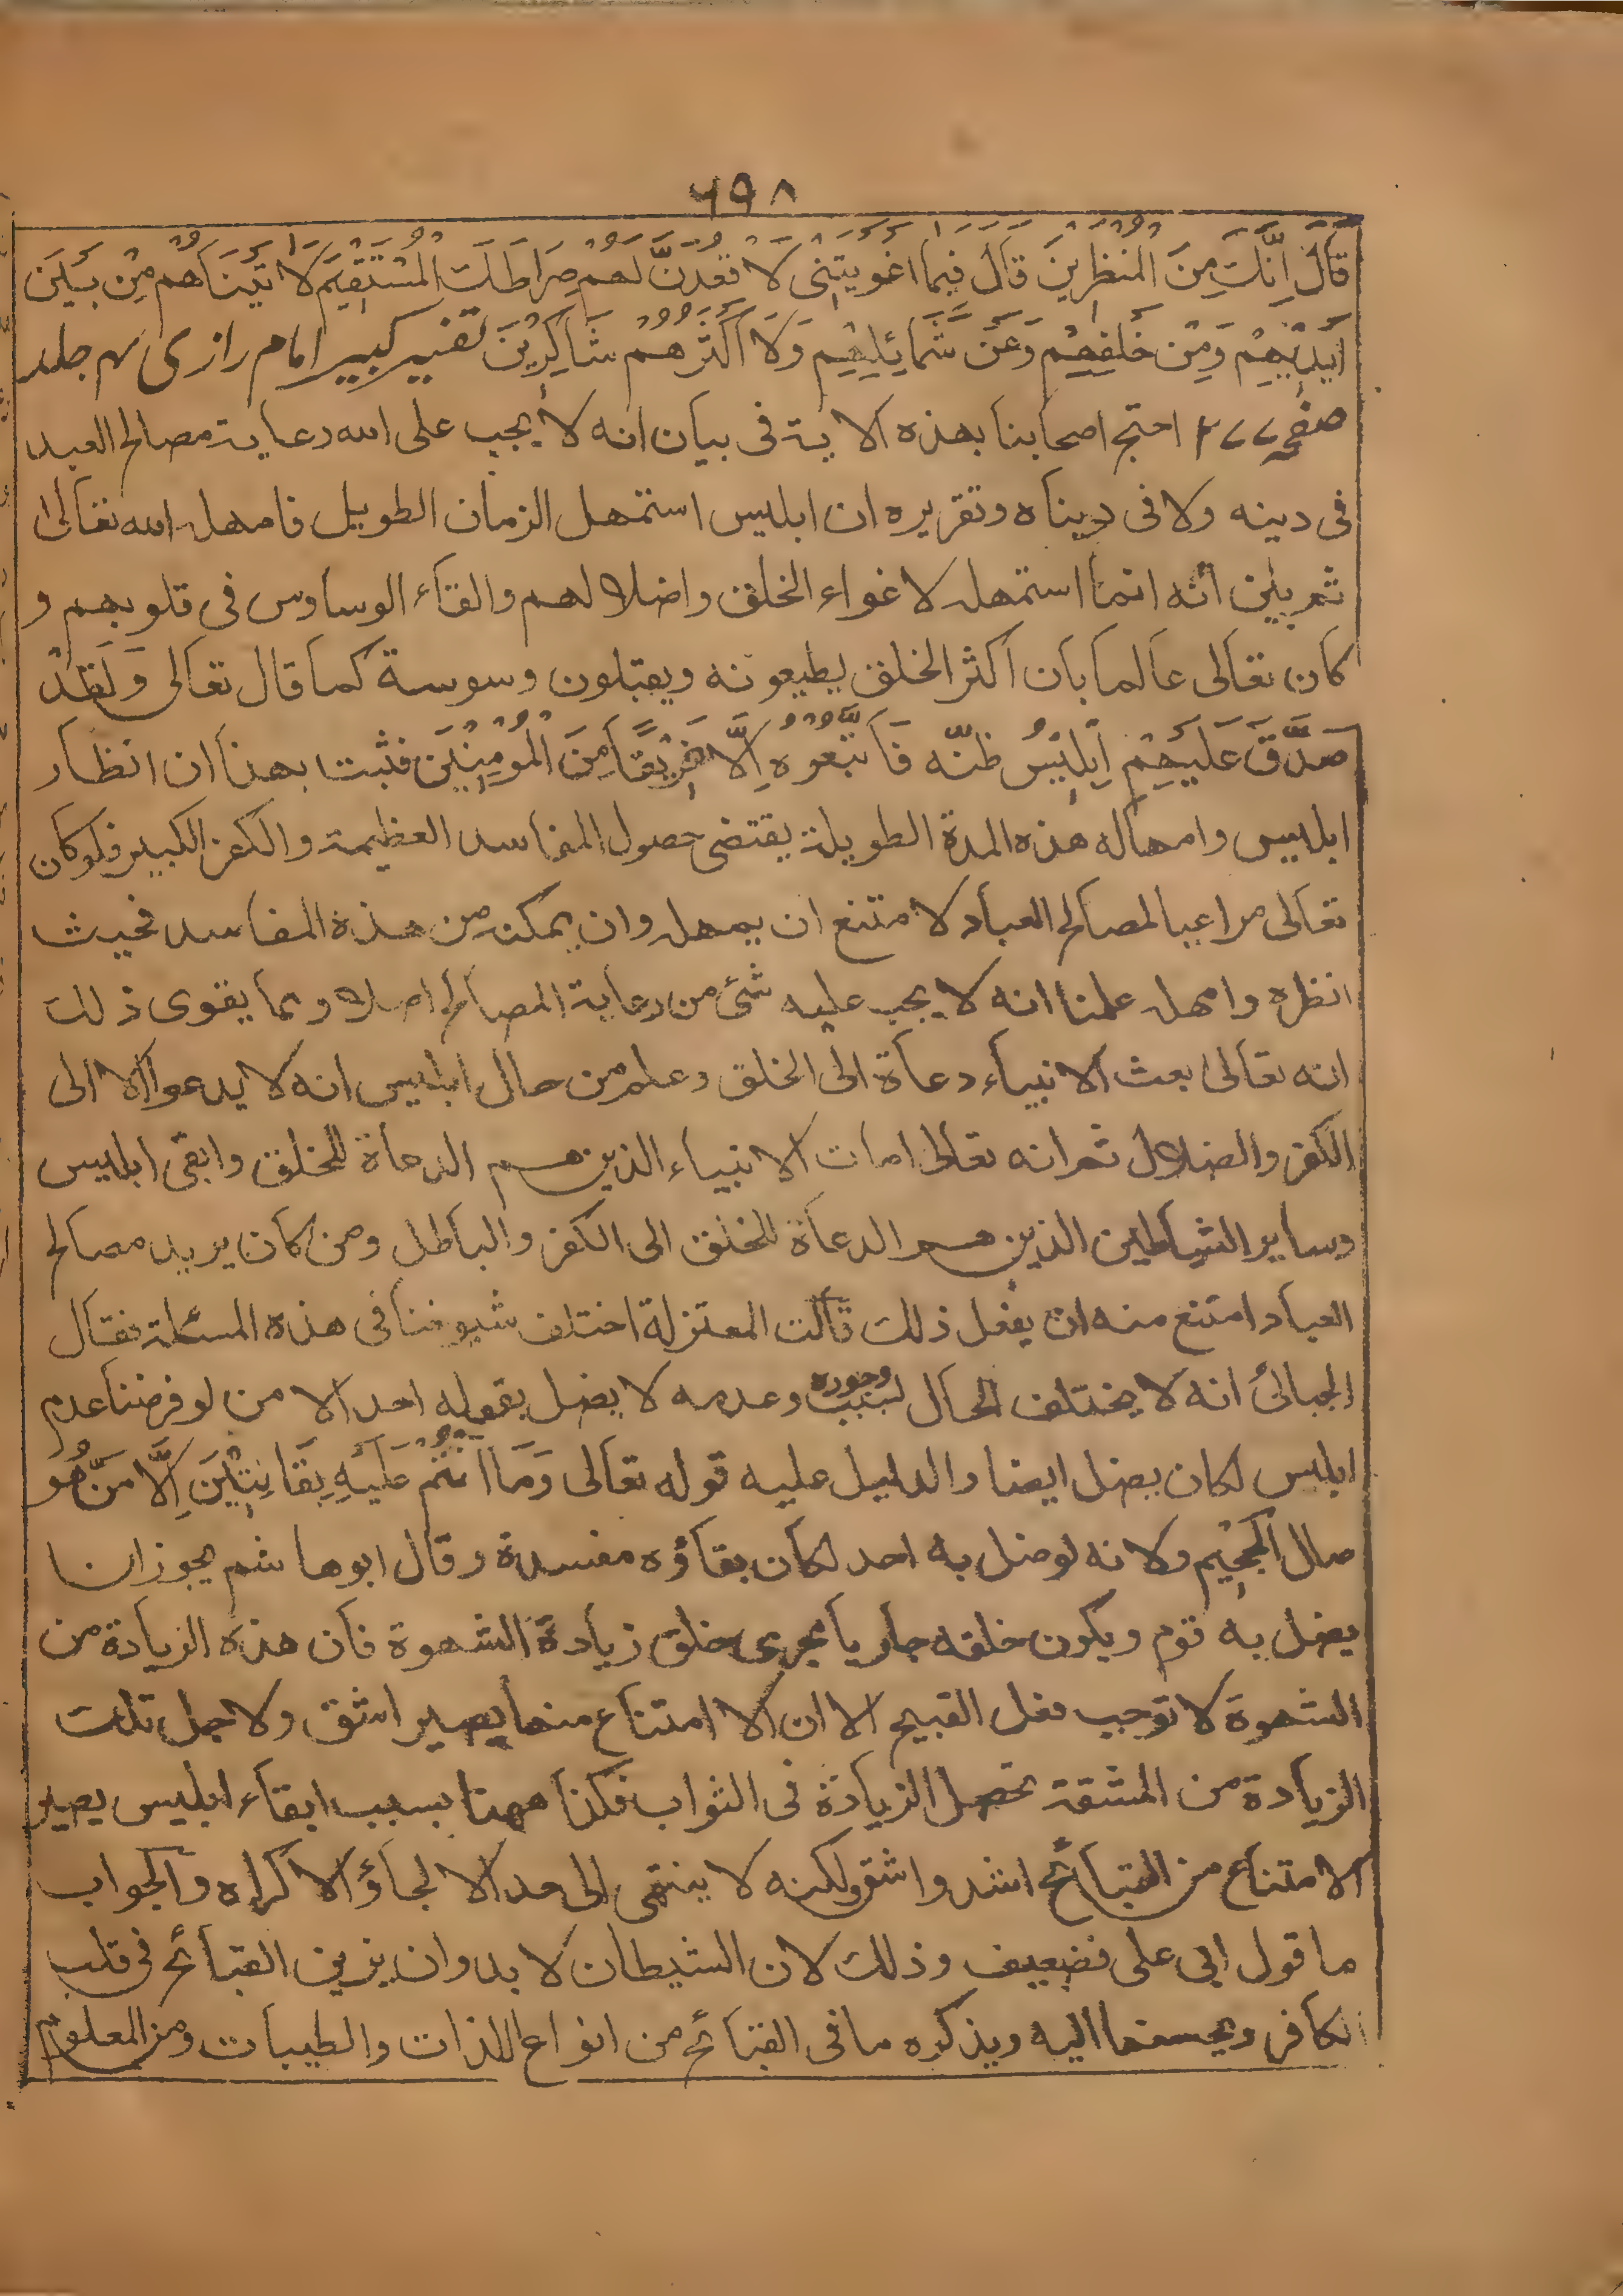 ۶۹۸
قَالَ اِنَّكَ مِنَ الْمُنْظَرِيْنَ قَالَ فَبِمَا اَغْوَيْتَنِى لَاَ قْعُدَنَّ لَهُمْ صِرَاطَكَ الْمُسْتَقِيْمَ لَاٰ تِيَنَّاهُم مِنْ بَيْنَ
اَيْدِيْهِمْ وَمِنْ خَلْفِهِمْ وَعَنْ شَمَائِلِهِمْ وَلَا اَكْثَرُهُمْ شَاكِرِيْنَ تفسير كبير امام رازى ۴ جلد
صفحه ۲۷۷ احتج اصحابنا بهذه الاية فى بيان انه لا يجب على الله رعاية مصالح العبد
فى دينه ولا فى ديناه وتقريره ان ابليس استمهل الزمان الطويل فامهل الله تعالى
ثم بين انه انما استمهل لاغواء الخلق واضلالهم والقاء الوساوس فى قلوبهم و
كان تعالى عالما بان اكثر الخلق يطيعونه ويقبلون وسوسة كما قال تعالى وَلَقَدْ
صَدَّقَ عَلَيْهِمْ اِبْلِيْسُ ظَنَّه فَاتَّبَعُوْهُ اِلَّا فَرِيْقًا مِنَ الْمُؤْمِنِيْنَ فثبت بهذا ان انظار
ابليس وامهاله هذه المدة الطويلة يقتضى حصول المفاسد العظيمة والكفر الكبير فلو كان
تعالى مراعيا لمصالح العباد لامتنع ان يمهل وان يمكنه من هذه المفاسد فحيث
انظره وامهل علمنا انه لا يجب عليه شئ من رعاية المصالح اصلا ومما يقوى ذلك
انه تعالى بعث الانبياء دعاة الى الخلق وعلم من حال ابليس انه لا يدعوا الا الى
الكفر والضلال ثم انه تعالى امات الانبياء الذين هم الدعاة للخلق وابقى ابليس
وساير الشياطين الذين هم الدعاة للخلق الى الكفر والباطل ومن كان يريد مصالح
العباد امتنع منه ان يفعل ذلك قالت المعتزلة اختلف شيوخنا فى هذه المسئلة فقال
الجبائى انه لا يختلف الحال لسبب وجوده وعدمه لا يضل بقوله احد الا من لو فرضنا عدم
ابليس لكان يضل ايضا والدليل عليه قوله تعالى وَمَا اَنْتُمْ عَلَيْهِ بِفَاتِنِيْنَ اِلَّا مَنْ هُوَ
صال الْجَحِيْم ولانه لو ضل به احد لكان بقاؤه مفسدة وقال ابو هاشم يجوز ان
يضل به قوم ويكون خلقه جاريا مجرى خلق زيادة الشهوة فان هذه الزيادة من
الشهوة لا توجب فعل القبيح الا ان الامتناع منها يصير اشق ولاجل تلك
الزيادة من المشقة تحصل الزيادة فى الثواب فكذا ههنا بسبب ابقاء ابليس يصير
الامتناع من القبائح اشد واشق ولكنه لا ينتهى الى حد الالجاؤ الاكراه والجواب
ما قول ابى على فضعيف وذلك لان الشيطان لا بد وان يزين القبائح فى قلب
الكافر ويحسنها اليه ويذكره ما فى القبائح من انواع اللذات والطيبات ومن المعلوم